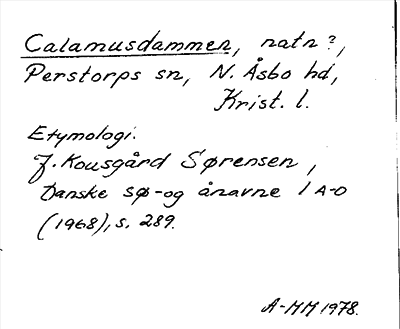 Calamusdammen, natn?,
Perstorps sn, N. Åsbo hd,
Krist. l.
Etymologi.
J. Kousgård Sørensen,
Danske sø- og ånavne 1 A-D
(1968), s. 289.
A-MM 1978.